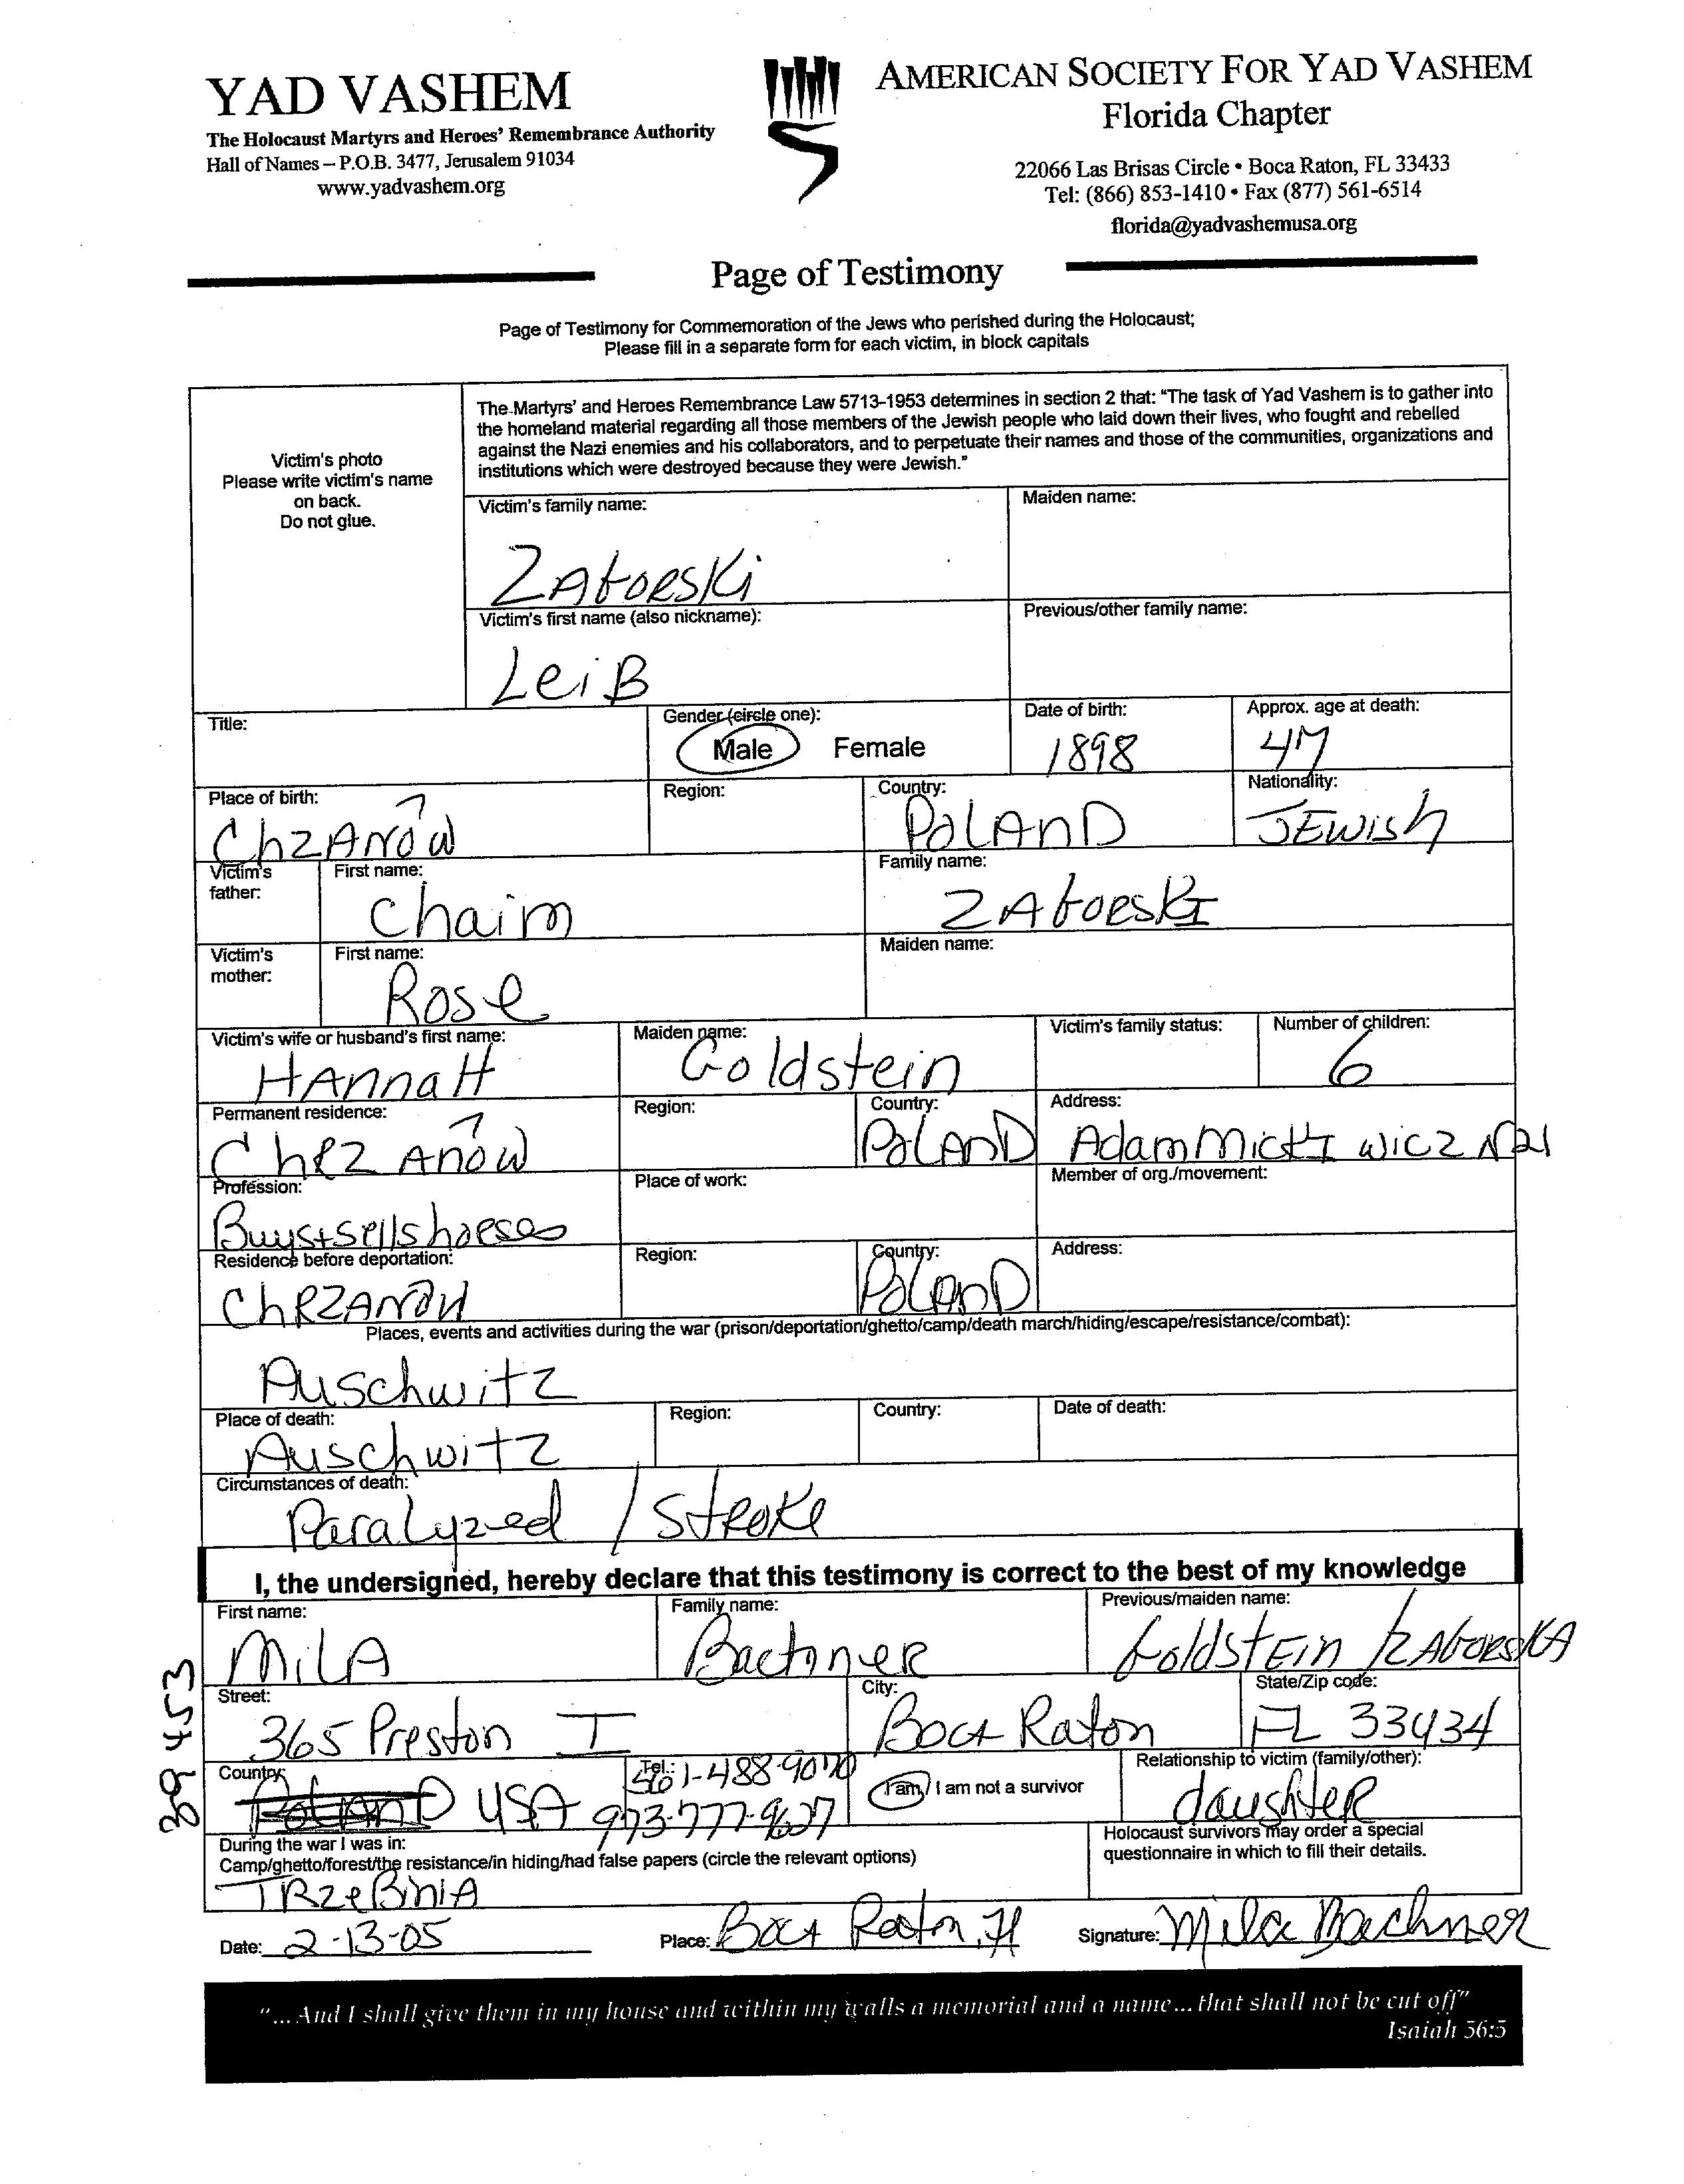 YAD VASHEM
The Holocaust Martyrs and Heroes' Remembrance Authority
Hall of Names – P.O.B. 3477, Jerusalem 91034
www.yadvashem.org
AMERICAN SOCIETY FOR YAD VASHEM
Florida Chapter
22066 Las Brisas Circle • Boca Raton, FL 33433
Tel: (866) 853-1410 • Fax (877) 561-6514
florida@yadvashemusa.org
Page of Testimony
Page of Testimony for Commemoration of the Jews who perished during the Holocaust;
Please fill in a separate form for each victim, in block capitals
Victim's photo
Please write victim's name
on back.
Do not glue.
The Martyrs' and Heroes Remembrance Law 5713-1953 determines in section 2 that: "The task of Yad Vashem is to gather into
the homeland material regarding all those members of the Jewish people who laid down their lives, who fought and rebelled
against the Nazi enemies and his collaborators, and to perpetuate their names and those of the communities, organizations and
institutions which were destroyed because they were Jewish."
Victim's family name: Maiden name:
ZAtoRSKi
Victim's first name (also nickname): Previous/other family name:
LeiB
Title: Gender (circle one): Date of birth: Approx. age at death:
Male Female 1898 47
Place of birth: Region: Country: Nationality:
ChZANOW POLAnD JEWISh
Victim's father: First name: Family name:
Chaim ZAtoRSKI
Victim's mother: First name: Maiden name:
Rose
Victim's wife or husband's first name: Maiden name: Victim's family status: Number of children:
HAnnaH Goldstein 6
Permanent residence: Region: Country: Address:
ChRZ AnOW POLAnD Adam MickI wicz N21
Profession: Place of work: Member of org./movement:
Buys+sells hoRses
Residence before deportation: Region: Country: Address:
ChRZANOW POLAnD
Places, events and activities during the war (prison/deportation/ghetto/camp/death march/hiding/escape/resistance/combat):
Auschwitz
Place of death: Region: Country: Date of death:
Auschwitz
Circumstances of death:
Paralyzed / StRoKe
I, the undersigned, hereby declare that this testimony is correct to the best of my knowledge
First name: Family name: Previous/maiden name:
MiLA BachneR GoldstEin /ZAtoRSKA
Street: City: State/Zip code:
365 Preston I Boca Raton FL 33434
Country: Tel.: I am/ I am not a survivor Relationship to victim (family/other):
PoLAnD USA 561-488-9070 daughteR
973-777-9627
During the war I was in:
Camp/ghetto/forest/the resistance/in hiding/had false papers (circle the relevant options)
TRzeBiniA
Holocaust survivors may order a special
questionnaire in which to fill their details.
Date: 2-13-05 Place: Boca Raton, Fl Signature: Mila BachneR
39453
"...And I shall give them in my house and within my walls a memorial and a name...that shall not be cut off"
Isaiah 56:5